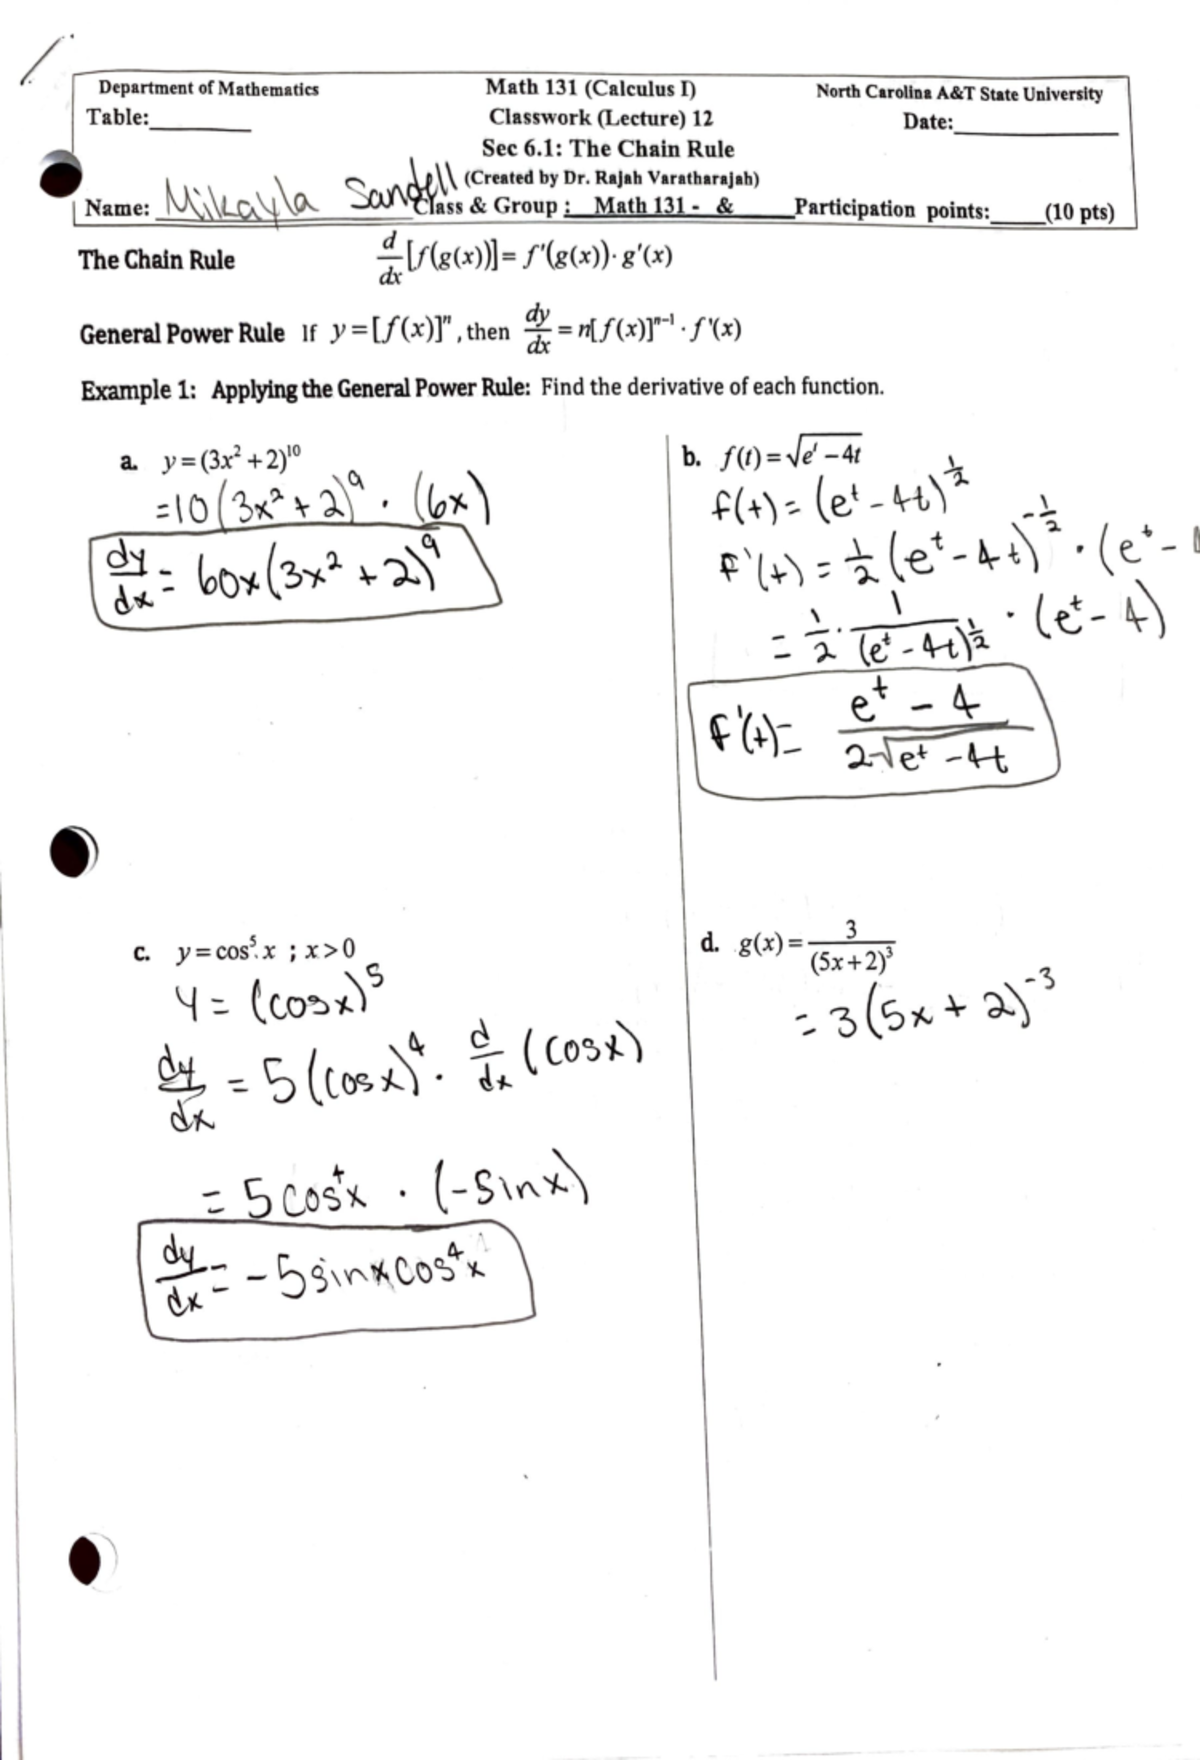 Department of Mathematics
Math 131 (Calculus I)
North Carolina A&T State University
Table:_______
Classwork (Lecture) 12
Date:_______
Sec 6.1: The Chain Rule
(Created by Dr. Rajah Varatharajah)
Name: Mikayla Sandell
Class & Group : Math 131 - & _____
Participation points:____(10 pts)
The Chain Rule d/dx [f(g(x))] = f'(g(x))·g'(x)
General Power Rule If y=[f(x)]ⁿ, then dy/dx = n[f(x)]ⁿ⁻¹·f'(x)
Example 1: Applying the General Power Rule: Find the derivative of each function.
a. y=(3x²+2)¹⁰
=10(3x²+2)⁹ · (6x)
dy/dx = 60x(3x²+2)⁹
b. f(t)=√(eᵗ−4t)
f(t) = (eᵗ-4t)^(1/2)
f'(t) = 1/2 (eᵗ-4t)^(-1/2) · (eᵗ-
= 1/2 · 1/(eᵗ-4t)^(1/2) · (eᵗ-4)
f'(t)= (eᵗ - 4)/(2√(eᵗ-4t))
c. y=cos⁵x ; x>0
y = (cosx)⁵
dy/dx = 5(cosx)⁴ · d/dx (cosx)
= 5cos⁴x · (-sinx)
dy/dx = -5sinxcos⁴x
d. g(x)= 3/(5x+2)³
= 3(5x+2)⁻³